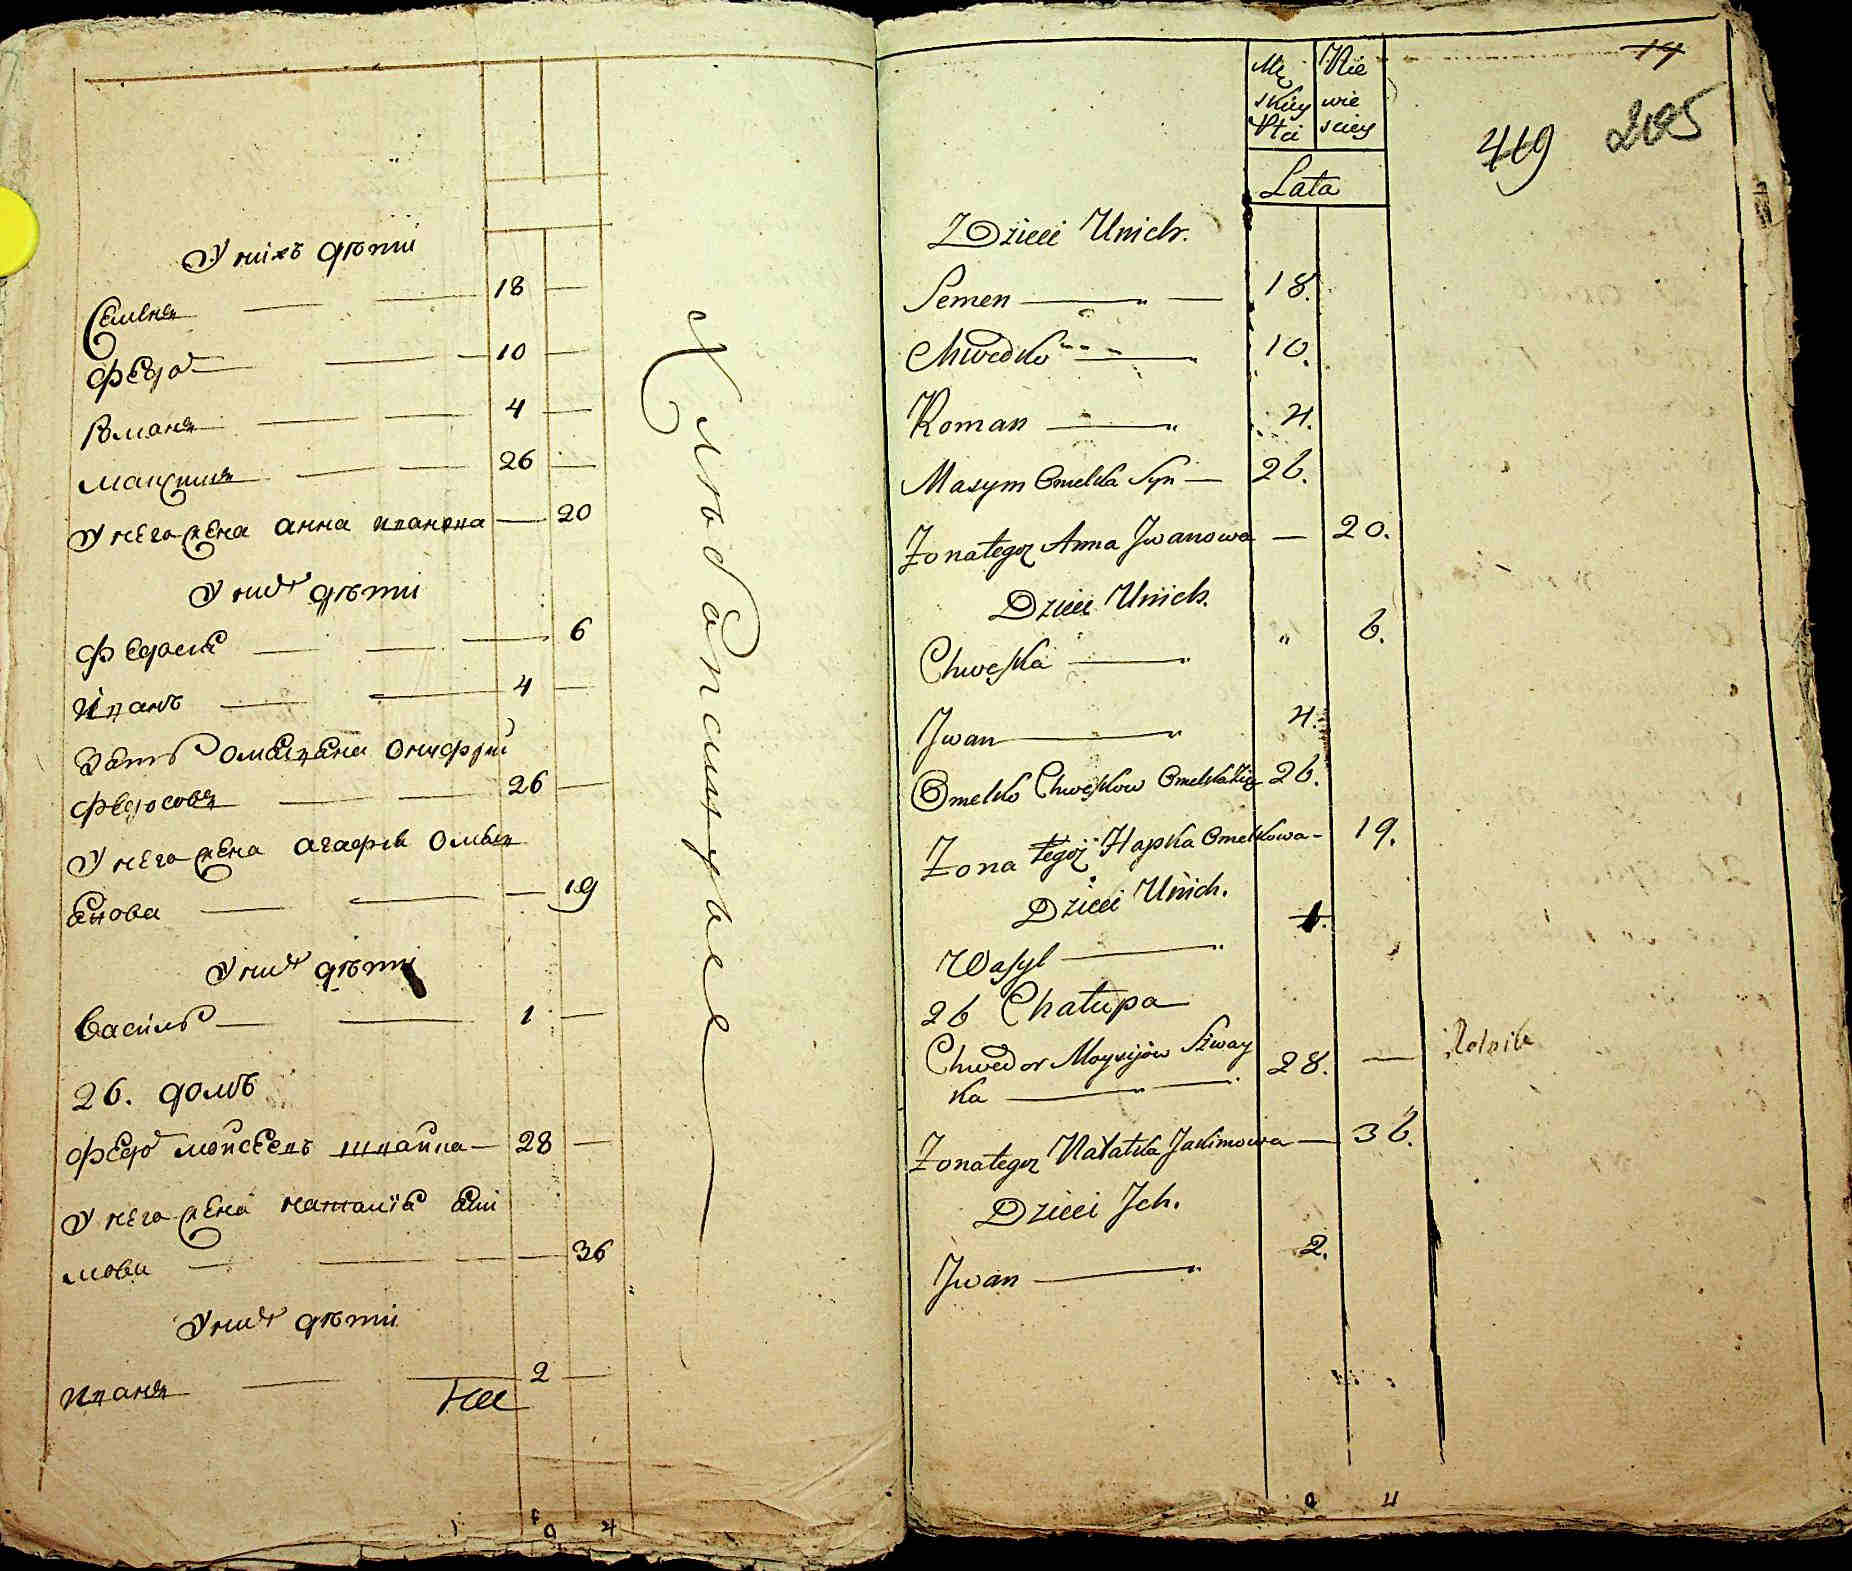 У нихъ дѣти
Семенъ 18
Федо 10
Романъ 4
Максимъ 26
У него жена Анна Иванова 20
У них дѣти
Федосія 6
Иванъ 4
Зять Омелъяна Онуфрій
Федосовъ 26
У него жена Агафія Омелъ
янова 19
У них дѣти
Василь 1
26. домъ
Федо Мойсеевъ Швайка 28
У него жена Наталія Яки
мова 36
У них дѣти
Иванъ 2
Mę Nie
skiey wie
Płci sciey
Lata
14
419 205
Dzieci Unich.
Semen 18.
Chwedko 10.
Roman 4.
Maxym Omelka Syn 26.
Zona tegoz Anna Jwanowa 20.
Dzieci Unich.
Chweska " 6.
Jwan 4.
Omelko Chweskow Omelka Zię 26.
Zona tegoz Hapka Omelkowa 19.
Dzieci Unich.
Wasyl 1.
26 Chałupa
Chwedor Moysijow Szway
ka 28. Rolnik
Zona tegoz Natalka Jakimowa 36.
Dzieci Jch.
Jwan 2.